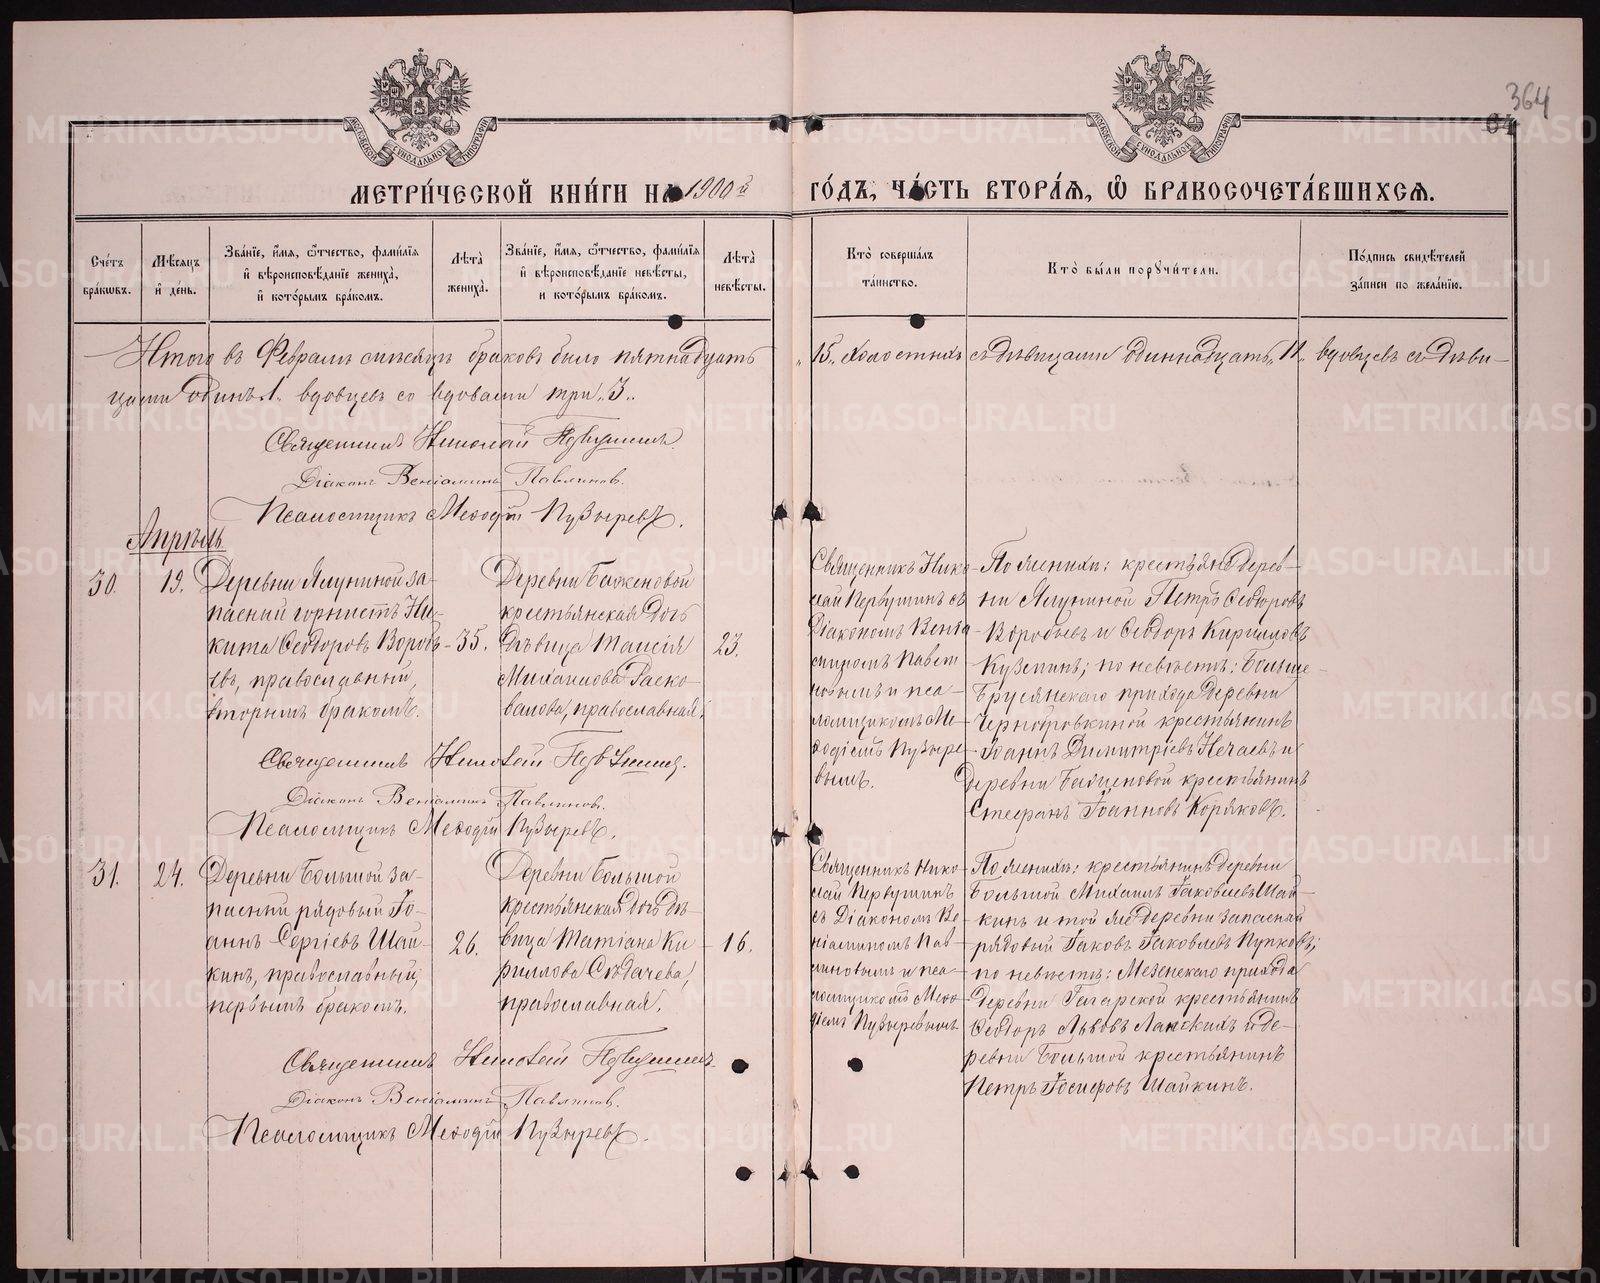 364
МЕТРИ́ЧЕСКОЙ КНИ́ГИ НА 1900й ГО́ДЪ, ЧА́СТЬ ВТОРА́Я, Ѡ БРАКОСОЧЕТА́ВШИХСЯ.
Сче́тъ бра́кѡвъ.
Мѣ́сяцъ и́ де́нь.
Зва́нїе, и́мя, ѻ́тчество, фами́лїя и́ вѣроисповѣ́данїе жениха̀, и́ кото́рымъ бра́комъ.
Лѣ́та жениха̀.
Зва́нїе, и́мя, ѻ́тчество, фами́лїя и́ вѣроисповѣ́данїе невѣ́сты, и кото́рымъ бра́комъ.
Лѣ́та невѣ́сты.
Кто̀ соверша́лъ та́инство.
Кто̀ бы́ли порꙋчи́тели.
По́дпись свидѣ́телей за́писи по жела́нїю.
Итого въ Февралѣ мѣсяцѣ браковъ было пятнадцать „15„ холостыхъ съ дѣвицами одиннадцать „11„ вдовцевъ съ дѣви-
цами одинъ „1„ вдовцевъ со вдовами три „3„.
Священникъ Николай Первушинъ.
Діаконъ Веніаминъ Павлиновъ.
Псаломщикъ Меѳодій Пузыревъ.
Апрѣль
30.
19.
Деревни Ялуниной за-
пасный горнистъ Ни-
кита Ѳеодоровъ Воробь-
евъ, православный,
вторымъ бракомъ.
35.
Деревни Баженовой
крестьянская дочь
дѣвица Таисія
Михаилова Раско-
валова, православная,
23.
Священникъ Нико-
лай Первушинъ съ
Діакономъ Венiа-
миномъ Павли-
новымъ и пса-
ломщикомъ Ме-
ѳодіемъ Пузыре-
вымъ.
По женихѣ: крестьяне дерев-
ни Ялуниной Петръ Ѳеодоровъ
Воробьевъ и Ѳеодоръ Кирилловъ
Кузминъ; по невѣстѣ: Больше-
Брусянскаго прихода деревни
крестьянинъ
Іоаннъ Димитріевъ Нечаевъ и
деревни Баженовой крестьянинъ
Стефанъ Іоанновъ Коряковъ.
Священникъ Николай Первушинъ.
Діаконъ Веніаминъ Павлиновъ.
Псаломщикъ Меѳодій Пузыревъ.
31.
24.
Деревни Большой за-
пасный рядовый Іо-
аннъ Сергіевъ Шай-
кинъ, православный,
первымъ бракомъ.
26.
Деревни Большой
крестьянская дочь дѣ-
вица Татіана Ки-
риллова Сѣдачева,
православная.
16.
Священникъ Нико-
лай Первушинъ
съ Діакономъ Ве-
ніаминомъ Пав-
линовымъ и пса-
ломщикомъ Меѳо-
діемъ Пузыревымъ
По женихѣ: крестьянинъ деревни
Большой Михаилъ Іаковлевъ Шай-
кинъ и той же деревни запасный
рядовый Іаковъ Іаковлевъ Пупковъ;
по невѣстѣ: Мезенскаго прихода
деревни Гагарской крестьянинъ
Ѳеодоръ Львовъ Ланскихъ и де-
ревни Большой крестьянинъ
Петръ Іосифовъ Шайкинъ.
Священникъ Николай Первушинъ.
Діаконъ Веніаминъ Павлиновъ.
Псаломщикъ Меѳодій Пузыревъ.
METRIKI.GASO-URAL.RU